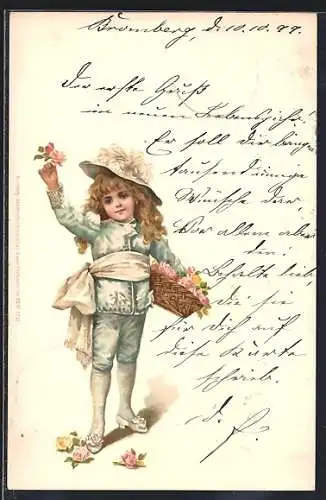 Bromberg, d. 10.10.99.
Der erste Gruß
im neuen Lebensjahr!
Er soll dir bringen
tausend innige
Wünsche der,
Vor allem aber
den:
Behalte lieb,
die sie
für dich auf
diese Karte
schrieb.
d. P.